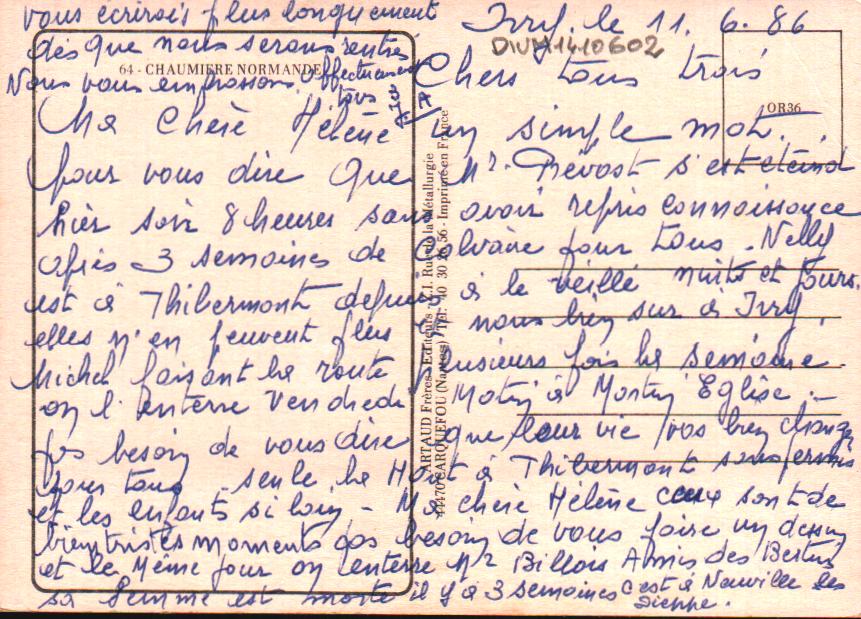 Ivry, le 11. 6. 86
DIVM1410602
64 - CHAUMIERE NORMANDE
OR36
Chers tous trois
Ma Chère Hélène un simple mot.
pour vous dire que Mr. Prévost s'est éteind
hier soir 8 heures sans avoir repris connaissance
après 3 semaines de Calvaire pour tous. Nelly
est à Thibermont depuis à le veillé nuits et jours.
elles n'en peuvent plus nous bien sur à Ivry.
Michel faisant la route plusieurs fois la semaine.
on l'enterre Vendredi à Martin Eglise.
pas besoin de vous dire que leur vie bien changé
pour tous seule la à Thibermont sans
et les enfants si loin - Ma chère Hélène ceux sont de
bien tristes moments pas besoin de vous faire un dessin
et le Même jour on enterre Mr Billois Amis des
sa femme est morte il y à 3 semaines c'est à Neuville les
Dieppe.
vous écrirais plus longuement
dès que nous serons rentrés
Nous vous embrassons Affectueusement
tous
ARTAUD Frères, Editeurs - Z.I. Rue de la Métallurgie
44470 CARQUEFOU (Nantes) / Tél. 40 30 26 56 - Imprimé en France